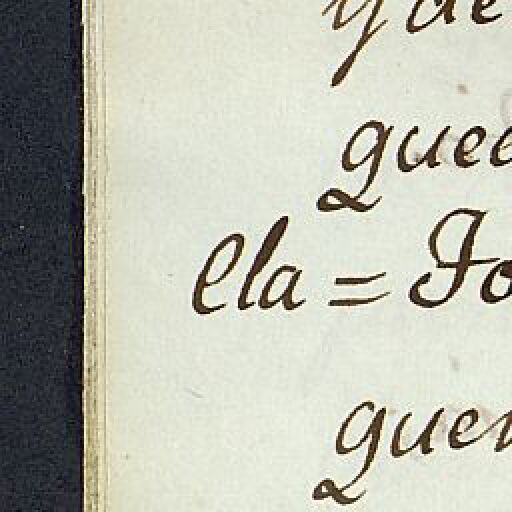 y de
qued
Ela = Fo
quer